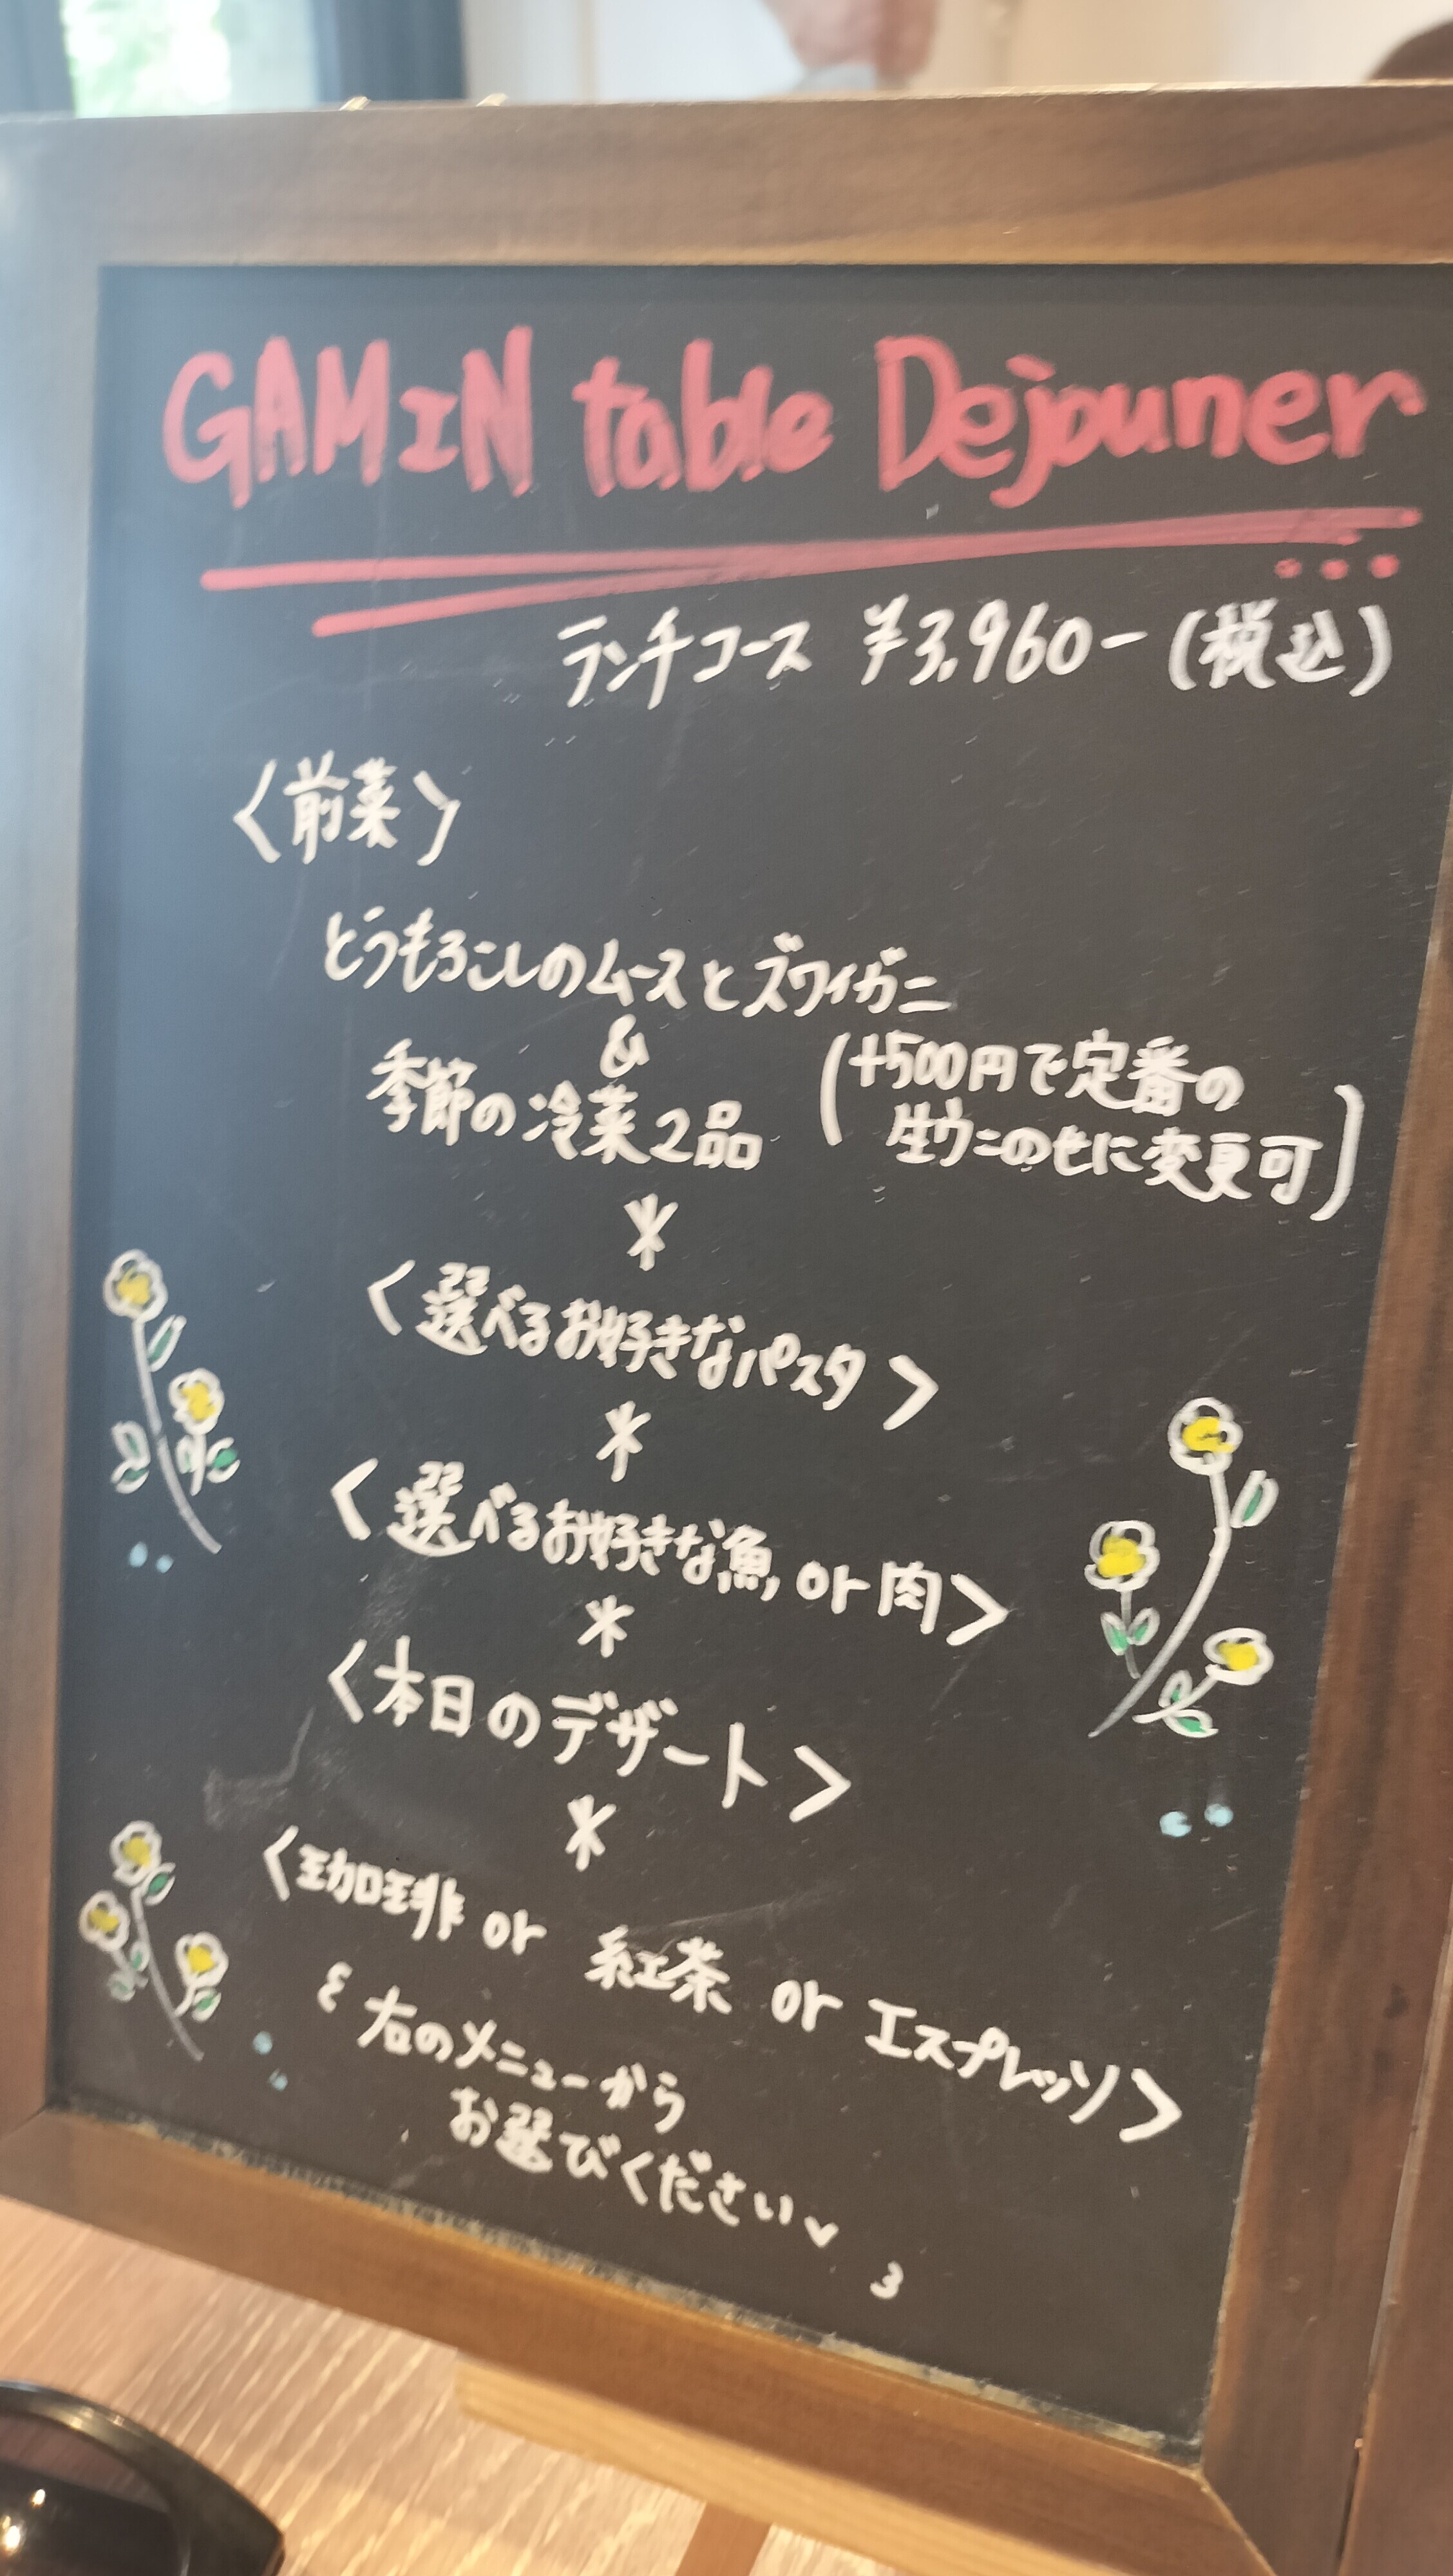 GAMIN table Dejouner
ランチコース ¥3,960-(税込)
〈前菜〉
とうもろこしのムースとズワイガニ
&
季節の冷菜2品
(+500円で定番の
生ウニのせに変更可)
*
〈選べるお好きなパスタ〉
*
〈選べるお好きな魚 or 肉〉
*
〈本日のデザート〉
*
〈珈琲 or 紅茶 or エスプレッソ〉
右のメニューから
お選びください